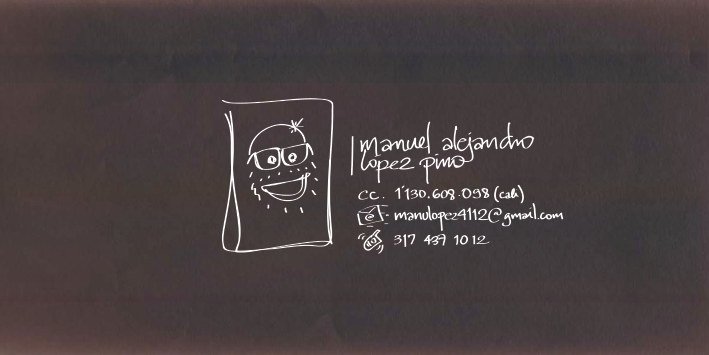 manuel alejandro
lopez pino
cc. 1'130.608.098 (cali)
manulopez4112@gmail.com
317 439 10 12